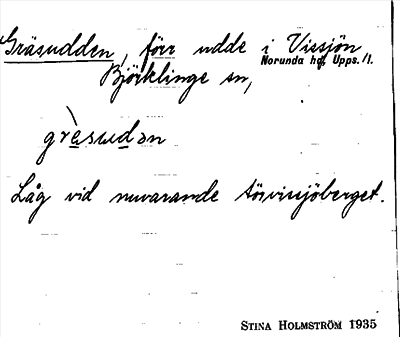 Gräsudden, förr udde i Vissjön
Norunda hd, Upps. l.
Björklinge sn,
gràsudən
Låg vid nuvarande törvissjöberget.
STINA HOLMSTRÖM 1935